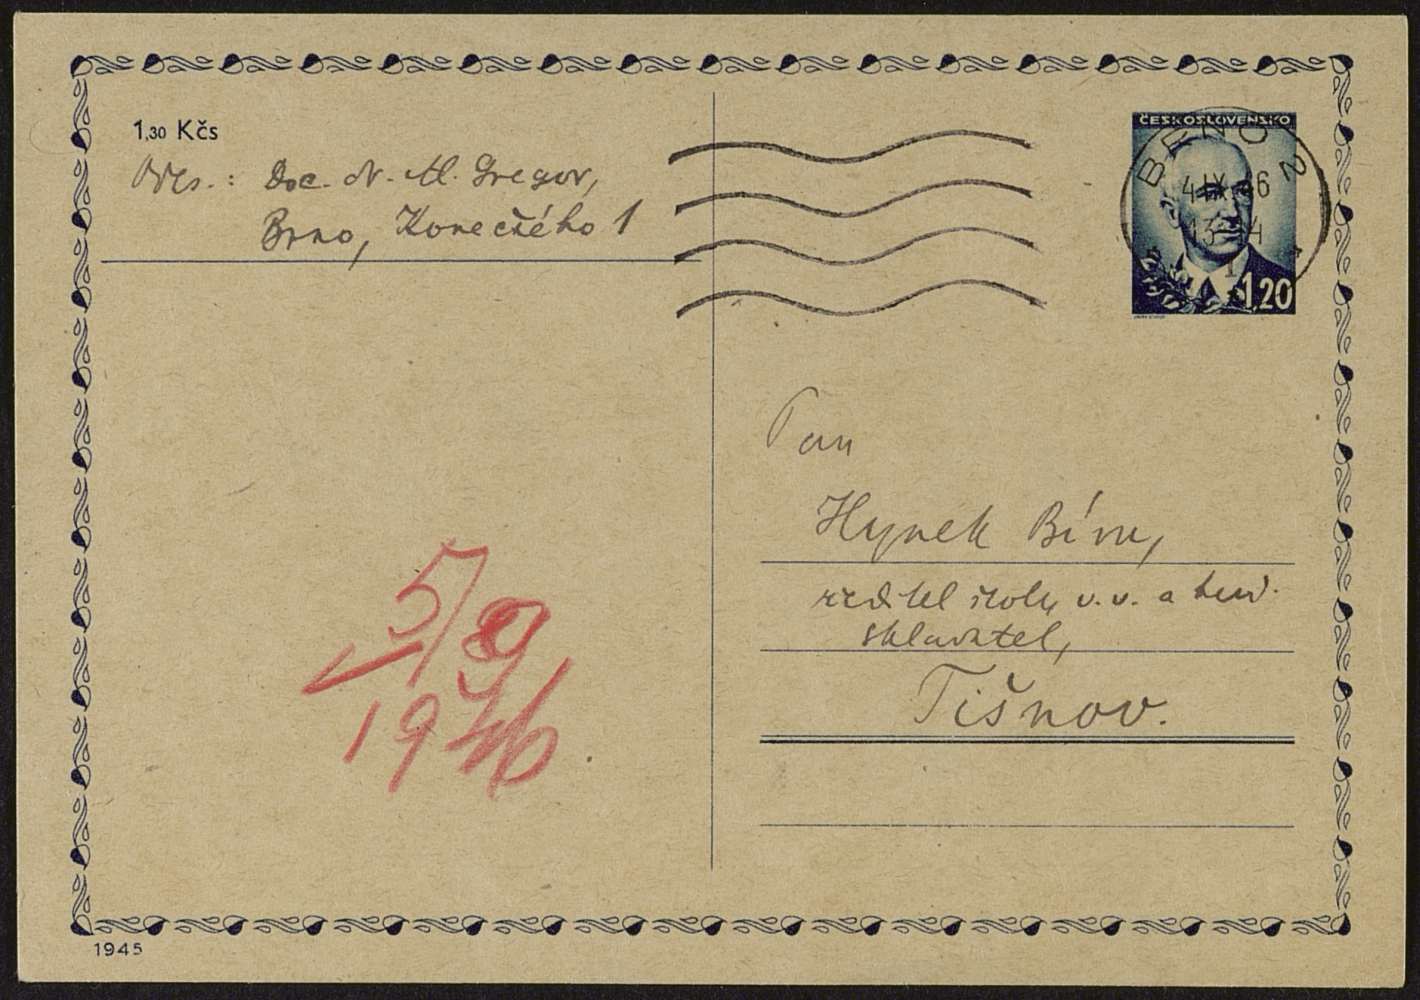 1,30 Kčs
Odes.: Doc. Dr. Al. Gregor,
Brno, Konečného 1
ČESKOSLOVENSKO
BRNO 2
4.IX.46
13-14
1
1,20
Pan
Hynek Bím,
ředitel školy v.v. a hud.
skladatel,
Tišnov.
5/9
1946
1945